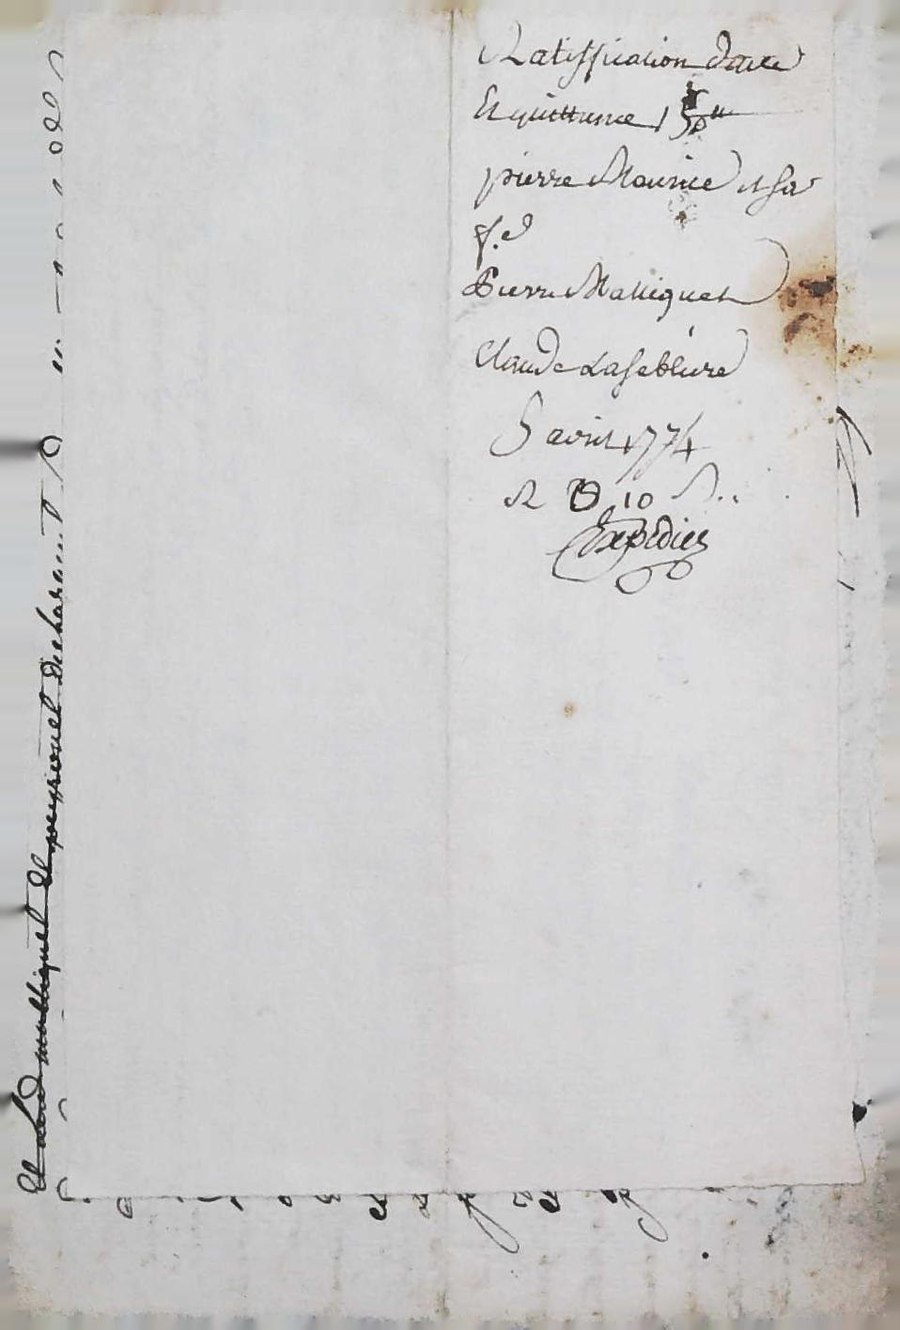 Ratiffication d'acte
Et quittance 150"
pierre Maurice et sa
f.e
Pierre Malliquet
Claude Lafeblure
5 avril 1774
R 10 s..
Expediez
Et led malliquet et peyronet